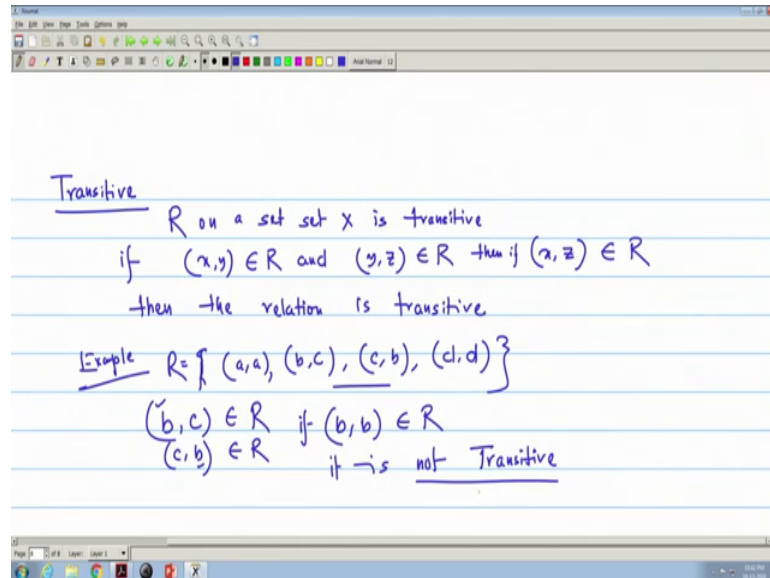 Xournal
File Edit View Page Tools Options Help
Arial Normal 12
Transitive
R on a set set X is transitive
if (x,y) ∈ R and (y,z) ∈ R then if (x,z) ∈ R
then the relation is transitive
Example R={ (a,a), (b,c), (c,b), (d,d) }
(b,c) ∈ R if (b,b) ∈ R
(c,b) ∈ R it is not Transitive
Page 8 of 8 Layer: Layer 1